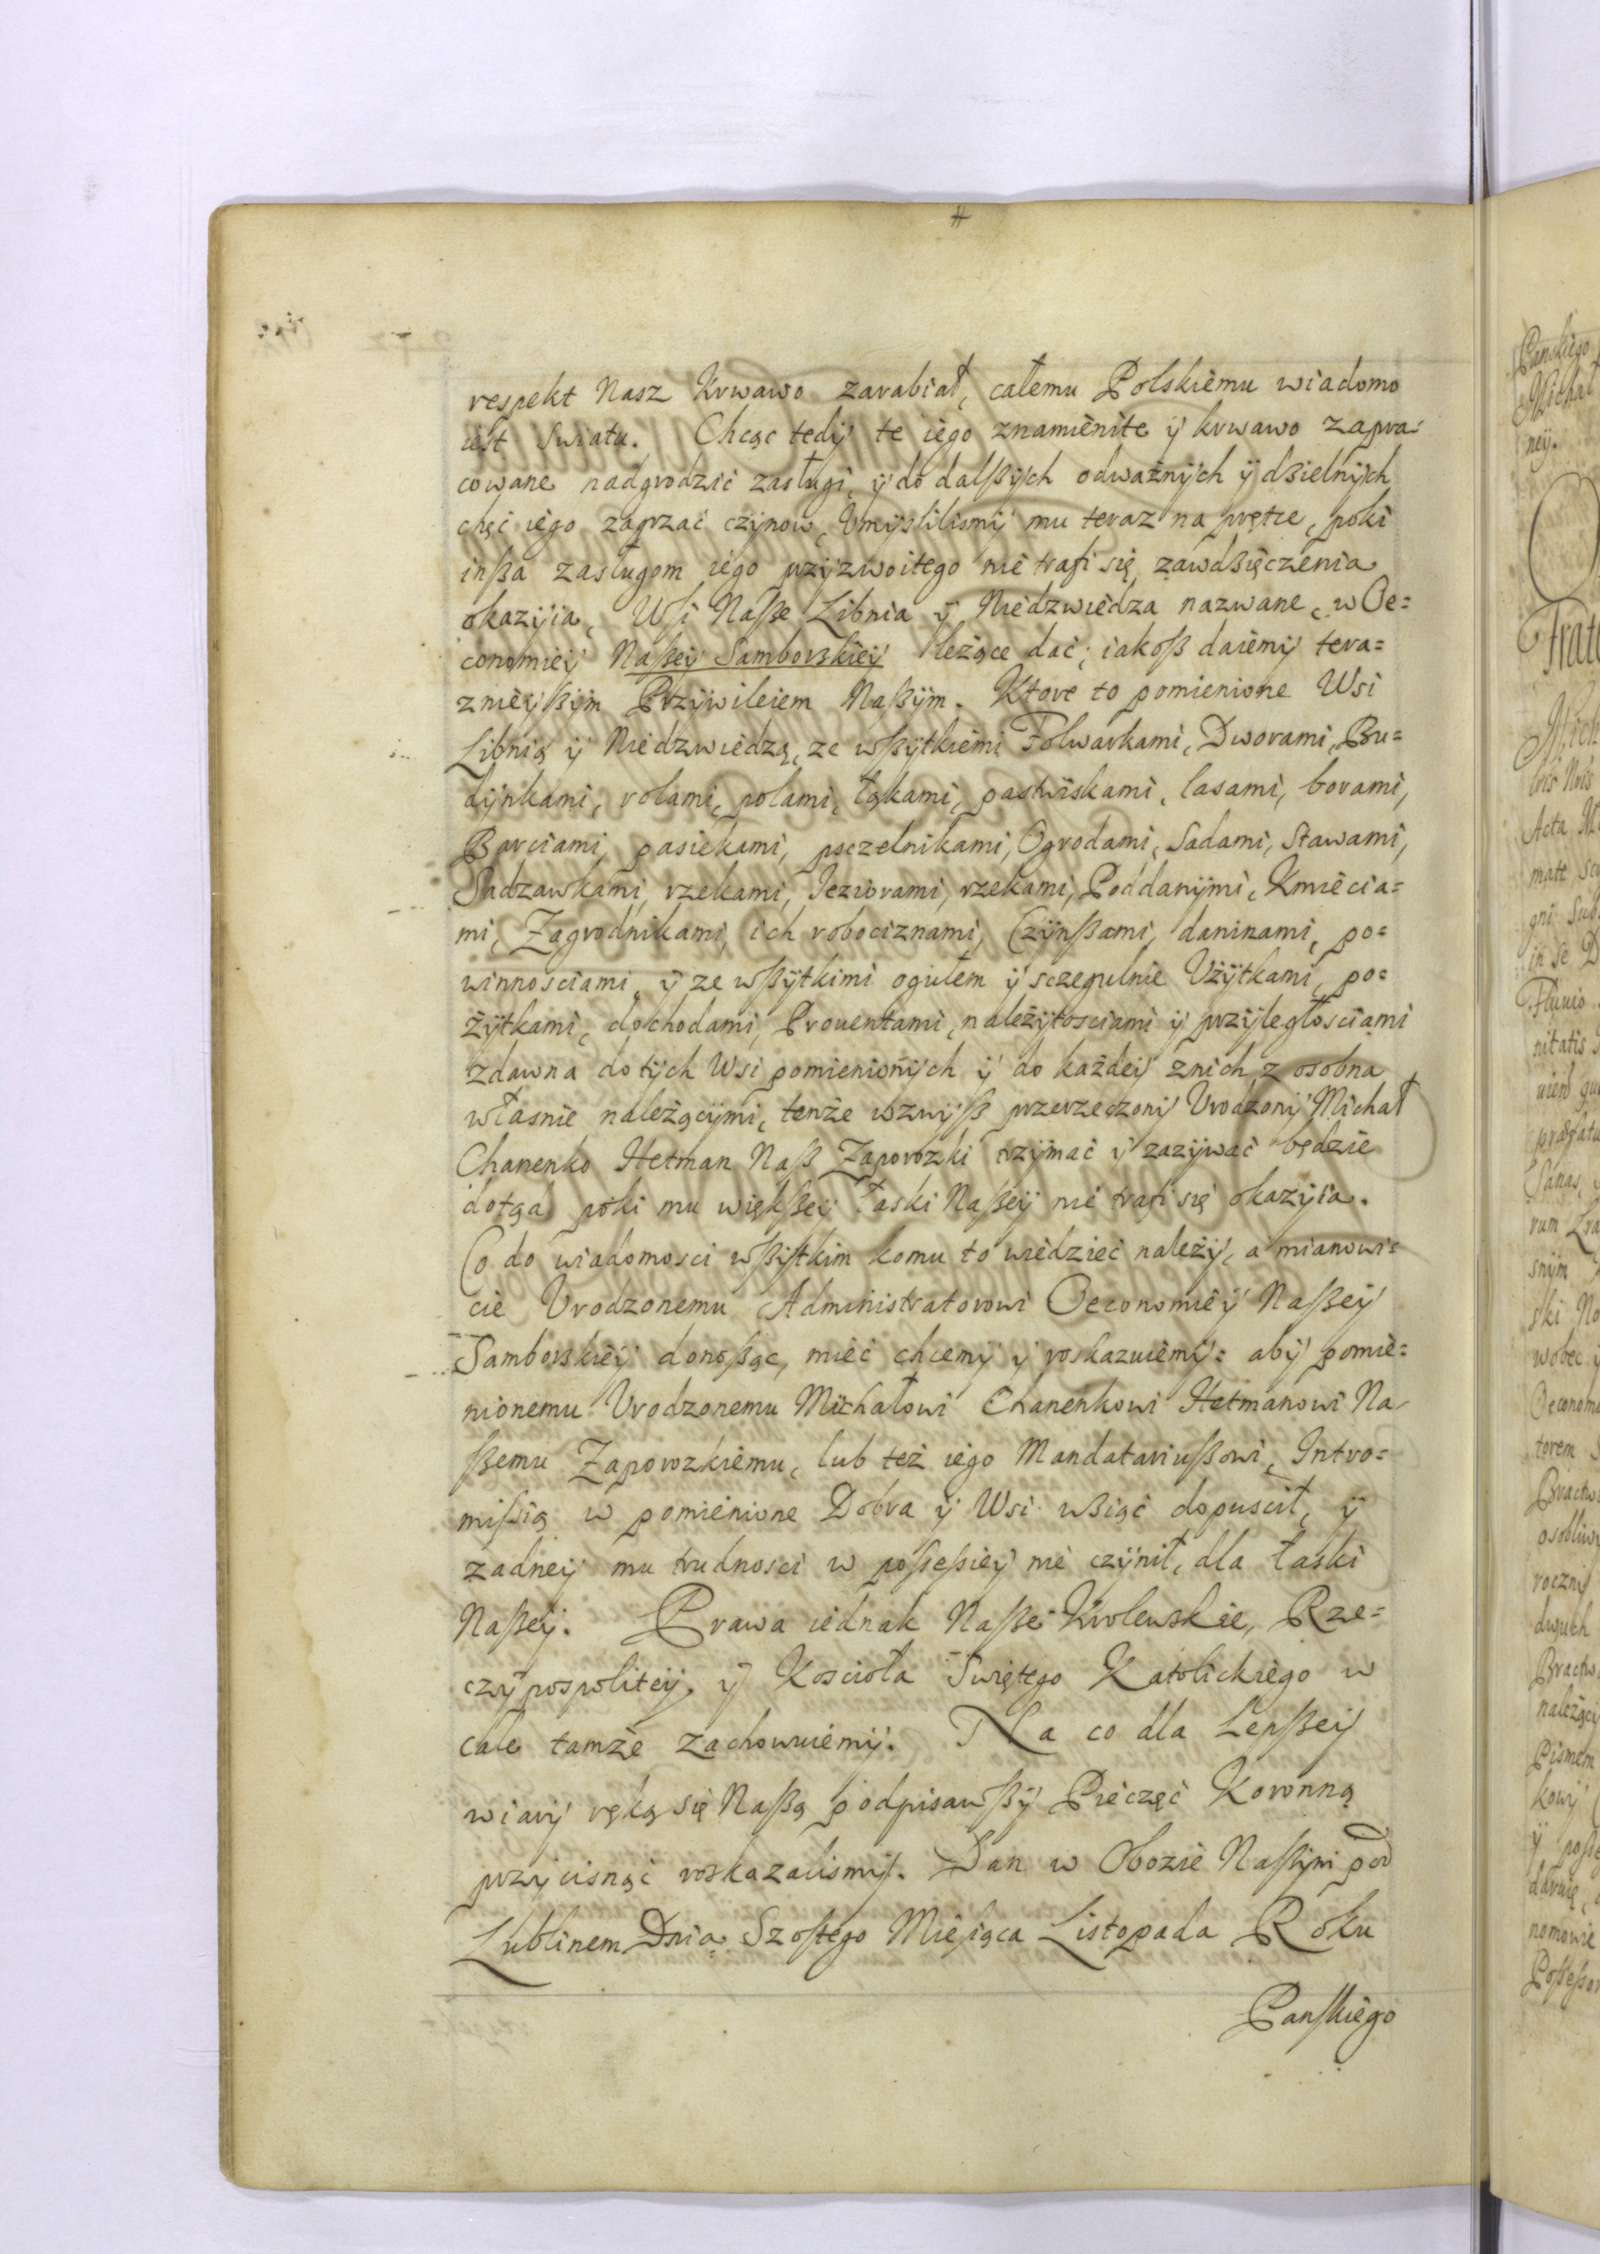 respekt Nasz Krwawo zarabiał, całemu Polskiemu wiadomo
iest Swiatu. Chcąc tedÿ te iego znamienite ÿ krwawo zapra=
cowane nadgrodzić zasługi, ÿ do dalßÿch odważnÿch ÿ dzielnÿch
chęć iego zagrzać czÿnow, Vmÿslilismÿ mu teraz na prętce, poki
inßa zasługom iego przÿzwoitego nie trafi się zawdzięczenia
okazÿia, Wsi Naße Libnia ÿ Niedzwiedza nazwane, w Oe=
conomieÿ Naßeÿ Samborskieÿ leżące dać; iakoß daiemÿ tera=
znieÿßÿm Przÿwileiem Naßÿm. Ktore to pomienione Wsi
Libnią ÿ Niedzwiedzą, ze wßÿtkiemi Folwarkami, Dworami, Bu=
dÿnkami, rolami, polami, łąkami, pastwiskami, lasami, borami,
Barciami, pasiekami, psczelnikami, Ogrodami, Sadami, Stawami,
Sadzawkami, rzekami, Ieziorami, rzekami, Poddanÿmi, Kmiecia=
mi, Zagrodnikami, ich robociznami, Czÿnßami, daninami, po=
winnosciami, ÿ ze wßÿtkimi ogułem ÿ sczegulnie Vżÿtkami, po=
żÿtkami, dochodami, Prouentami, należÿtosciami ÿ przÿległosciami
zdawna do tÿch Wsi pomienionÿch ÿ do każdeÿ znich z osobna
własnie należącÿmi, tenże wzwÿß przerzeczonÿ Vrodzonÿ Michał
Chanenko Hetman Naß Zaporozki trzÿmać ÿ zazÿwać będzie
dotąd poki mu więkßeÿ łaski Naßeÿ nie trafi się okazÿia.
Co do wiadomosci wßÿtkim komu to wiedzieć należÿ, a mianowi=
cie Vrodzonemu Administratorowi Oeconomieÿ Naßeÿ
Samborskieÿ donosząc, mieć chcemÿ ÿ roskazuiemÿ: abÿ pomie=
nionemu Vrodzonemu Michałowi Chanenkowi Hetmanowi Na
ßemu Zaporozkiemu, lub też iego Mandatariußowi, Intro=
mißią w pomienione Dobra ÿ Wsi wziąć dopuscił, ÿ
zadneÿ mu trudnosci w poßeßieÿ nie czÿnił, dla łaski
Naßeÿ. Prawa iednak Naße Krolewskie, Rze=
czÿpospoliteÿ, ÿ Koscioła Swiętego Katolickiego w
cale tamże zachowuiemÿ. Na co dla Lepßeÿ
wiarÿ ręką się Naßą podpisawßÿ Pieczęć Koronną
przÿcisnąć roskazalismÿ. Dan w Obozie Naßÿm pod
Lublinem Dnia Szostego Miesiąca Listopada Roku
Panskiego